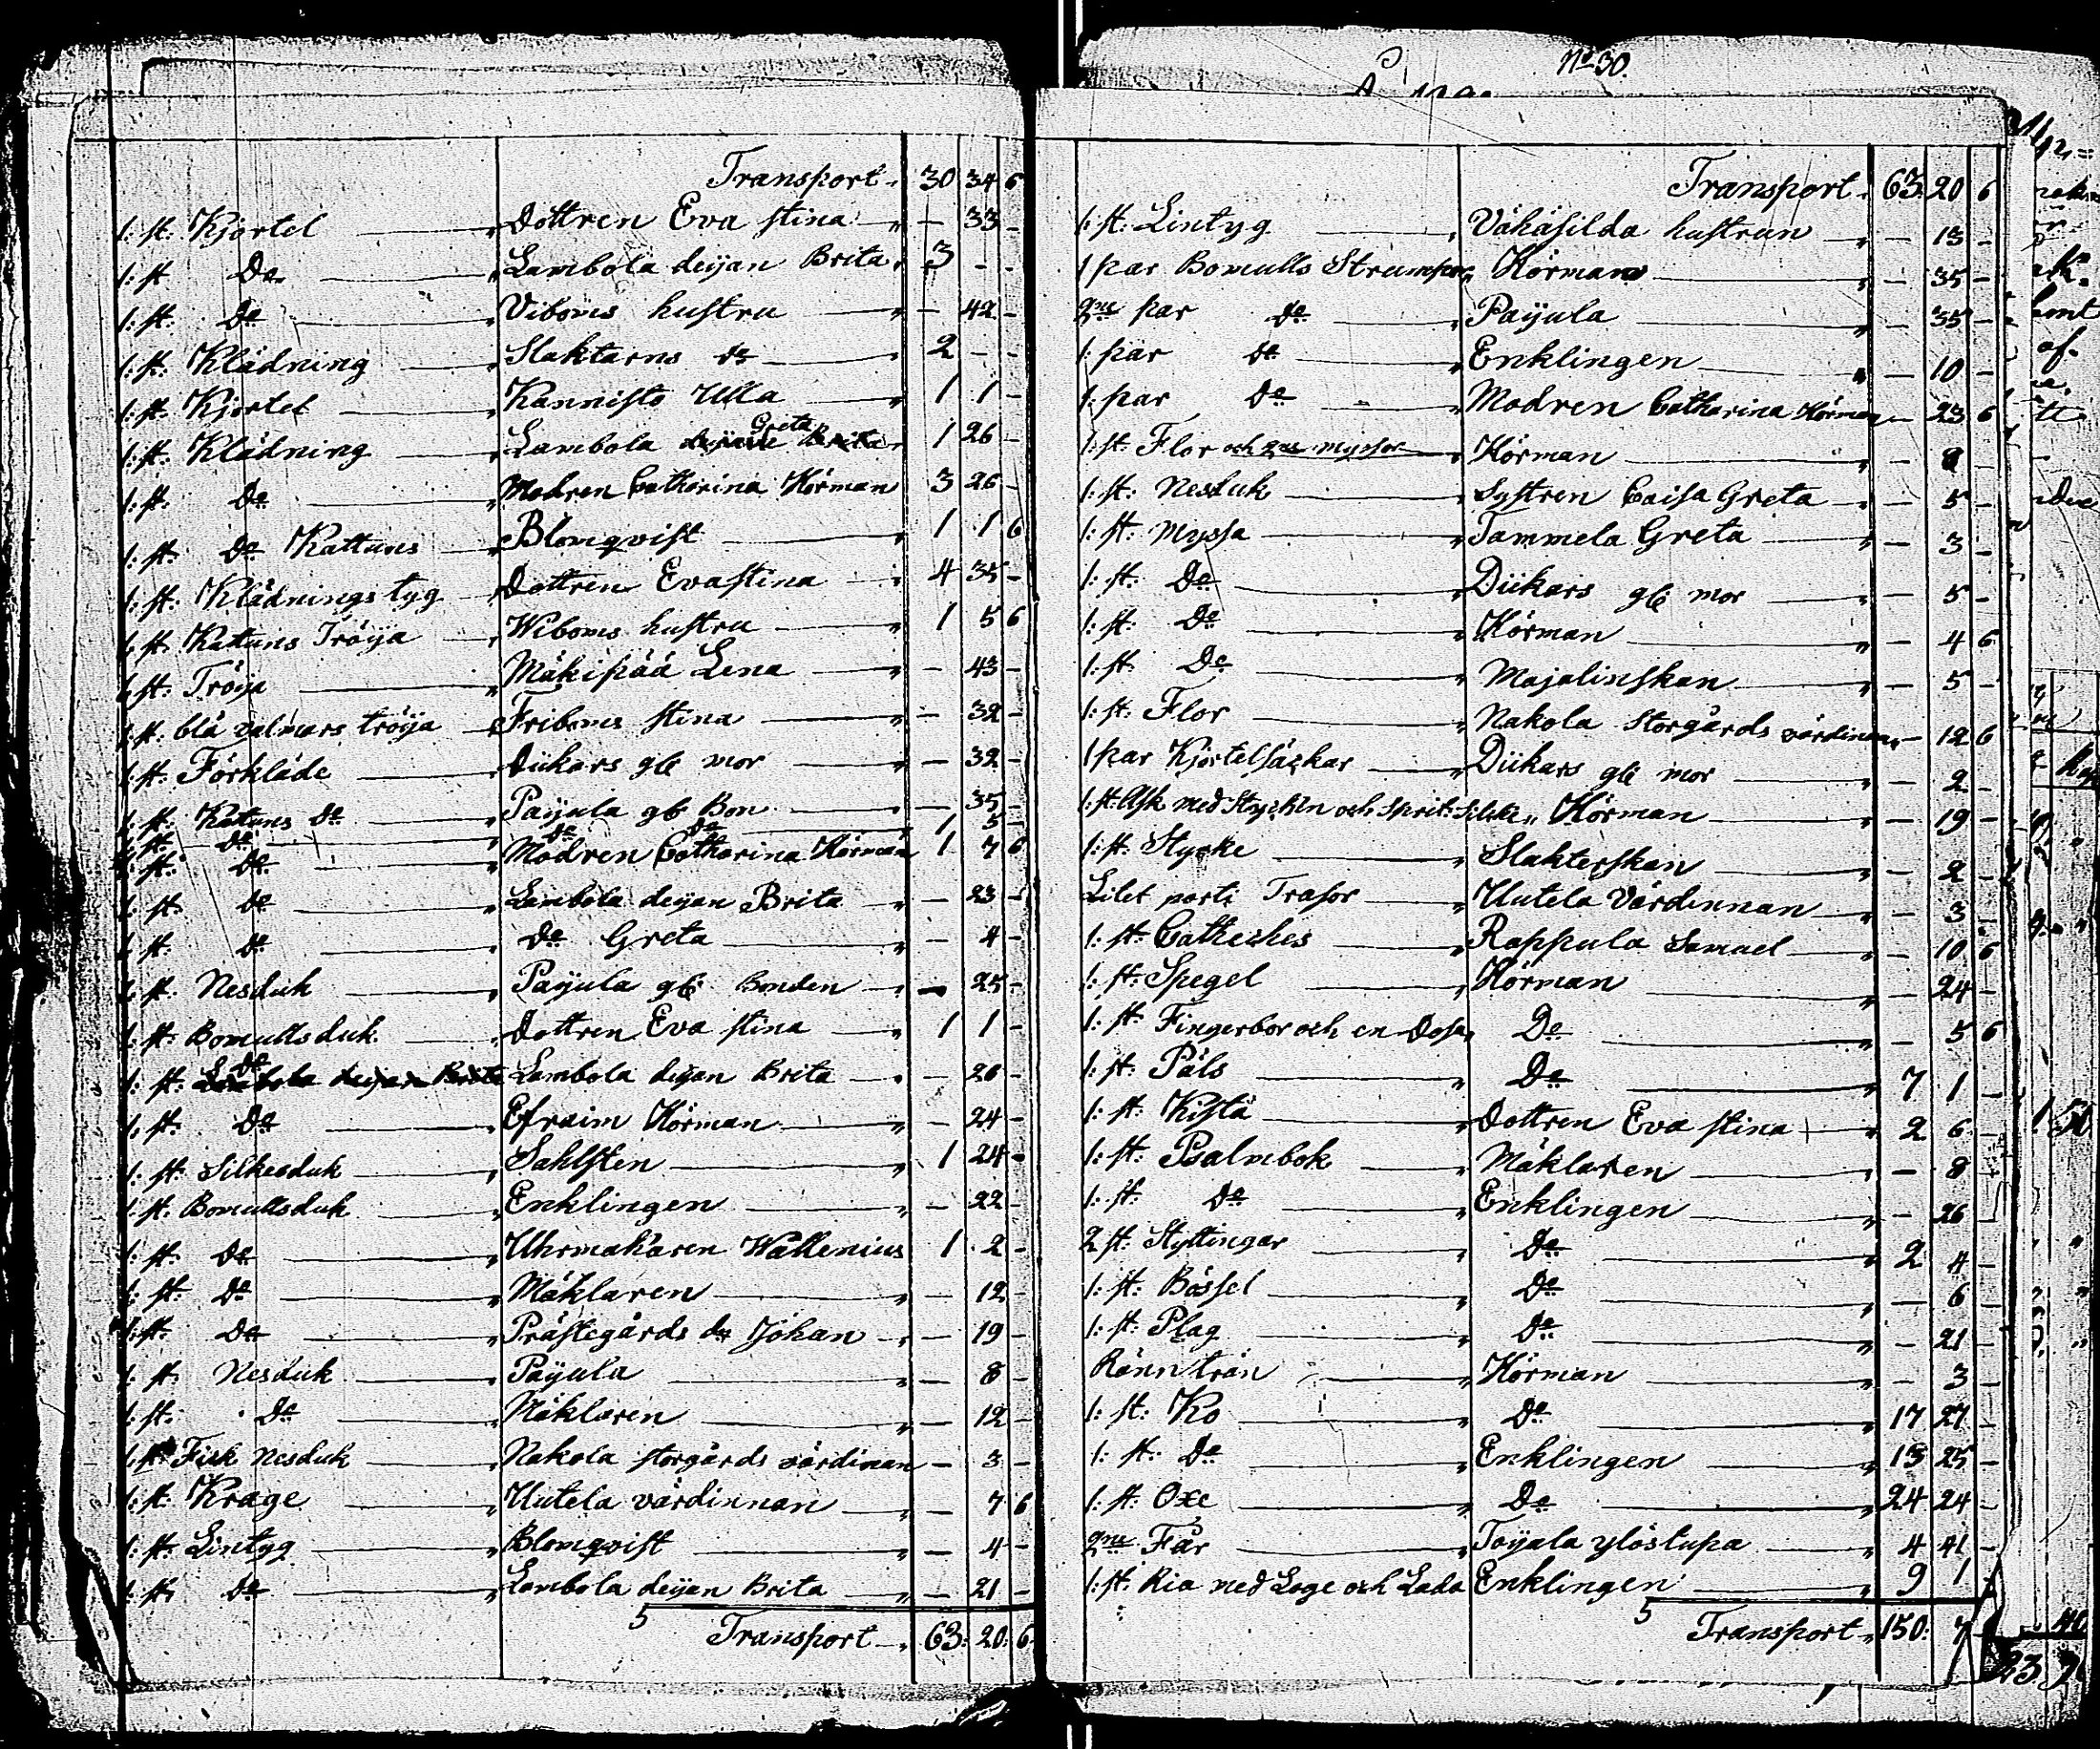 Transport 30 34 6
1: st. Kjortel Dottren Eva Stina — 33 —
1: st De Lambola deijan Brita 3 — —
1: st. De Viboms hustru — 42 —
1: st. Klädning Slaktarns De 2 — —
1: st. Kjortel Kannisto Ulla 1 1 —
1: st. Klädning Lambola Greta 1 26 —
1: st. De Modren Catharina Körman 3 26 —
1: st. De Kattuns Blomqvist 1 1 6
1: st: Klädningstyg Dottren Eva Stina 4 35 —
1 st Kattuns Tröija Wiboms hustru 1 5 6
1 st. Tröija Mäkipää Lena — 43 —
1 st. blå valmars tröija Friboms Stina — 32 —
1 st. Förkläde Diikars gl: mor — 32 —
1 st. Katuns De Paijula gl: Bon — 35 —
1 st. De De De 1 5 —
1 st. De Modren Catharina Körman 1 7 6
1 st. De Lambola deijan Brita — 23 —
1 st. De De Greta — 4 —
1 st. Nesduk Paijula gl: Bonden — 25 —
1: st. Bomullsduk Dottren Eva Stina 1 1 —
1: st: De Lambola deijan Brita — 26 —
1: st: De Efraim Körman — 24 —
1: st: Silkesduk Sahlsten 1 24 —
1: st. Bomullsduk Enklingen — 22 —
1: st: De Uhrmakaren Wallenius 1 2 —
1: st: De Mäklaren — 12 —
1: st: De Prästegårds dr Johan — 19 —
1: st. Nesduk Paijula — 8 —
1: st. De Mäklaren — 12 —
1: st. Fick Nesduk Nakola storgårds värdinan — 3 —
1: st. Krage Uutela värdinnan — 7 6
1: st. Lintyg Blomqvist — 4 —
1: st. De Lambola deijan Brita — 21 —
5 Transport 63: 20: 6
No 30.
Transport 63 20 6
1: st: Lintyg Vähäsilda hustrun — 13 —
1 par Bomulls Strumpor Körman — 35 —
2ne par De Paijula — 35 —
1: par De Enklingen — 10 —
1: par De Modren Catharina Körman — 23 6
1: st. Flor och 2ne myssor Körman — 9 —
1: st: Nesduk Systren Caisa Greta — 5 —
1: st: Myssa Tammela Greta — 3 —
1: st: De Diikars gl: mor — 5 —
1: st: De Körman — 4 6
1: st: De Majalinskan — 5 —
1: st: Flor Nakola Storgårds värdinan — 12 6
1 par Kjortelsäckar Diikars gl: mor — 2 —
1: st. Ask med Stycken och Körman — 19 —
1: st: Stycke Slakterskan — 2 —
Litet parti Trasor Uutela Värdinnan — 3 —
1: st: Catheches Rappula Samuel — 10 6
1: st: Spegel Körman — 24 —
1: st: Fingerbor och en Dosa De — 5 6
1: st: Päls De 7 1 —
1: st: Kista Dottren Eva Stina 2 6 —
1: st: Psalmbok Mäklaren — 8 —
1: st: De Enklingen — 26 —
2 st: Styttingar De 2 4 —
1: st. Bössel De — 6 —
1: st. Plag De — 21 —
Ränn trän Körman — 3 —
1: st: Ko De 17 27 —
1: st: De Enklingen 13 25 —
1: st. Oxe De 24 24 —
2ne Får Toijala ylöstupa 4 41 —
1: st. Ria med Loge och Lada Enklingen 9 1 —
5 Transport 150: 7 —